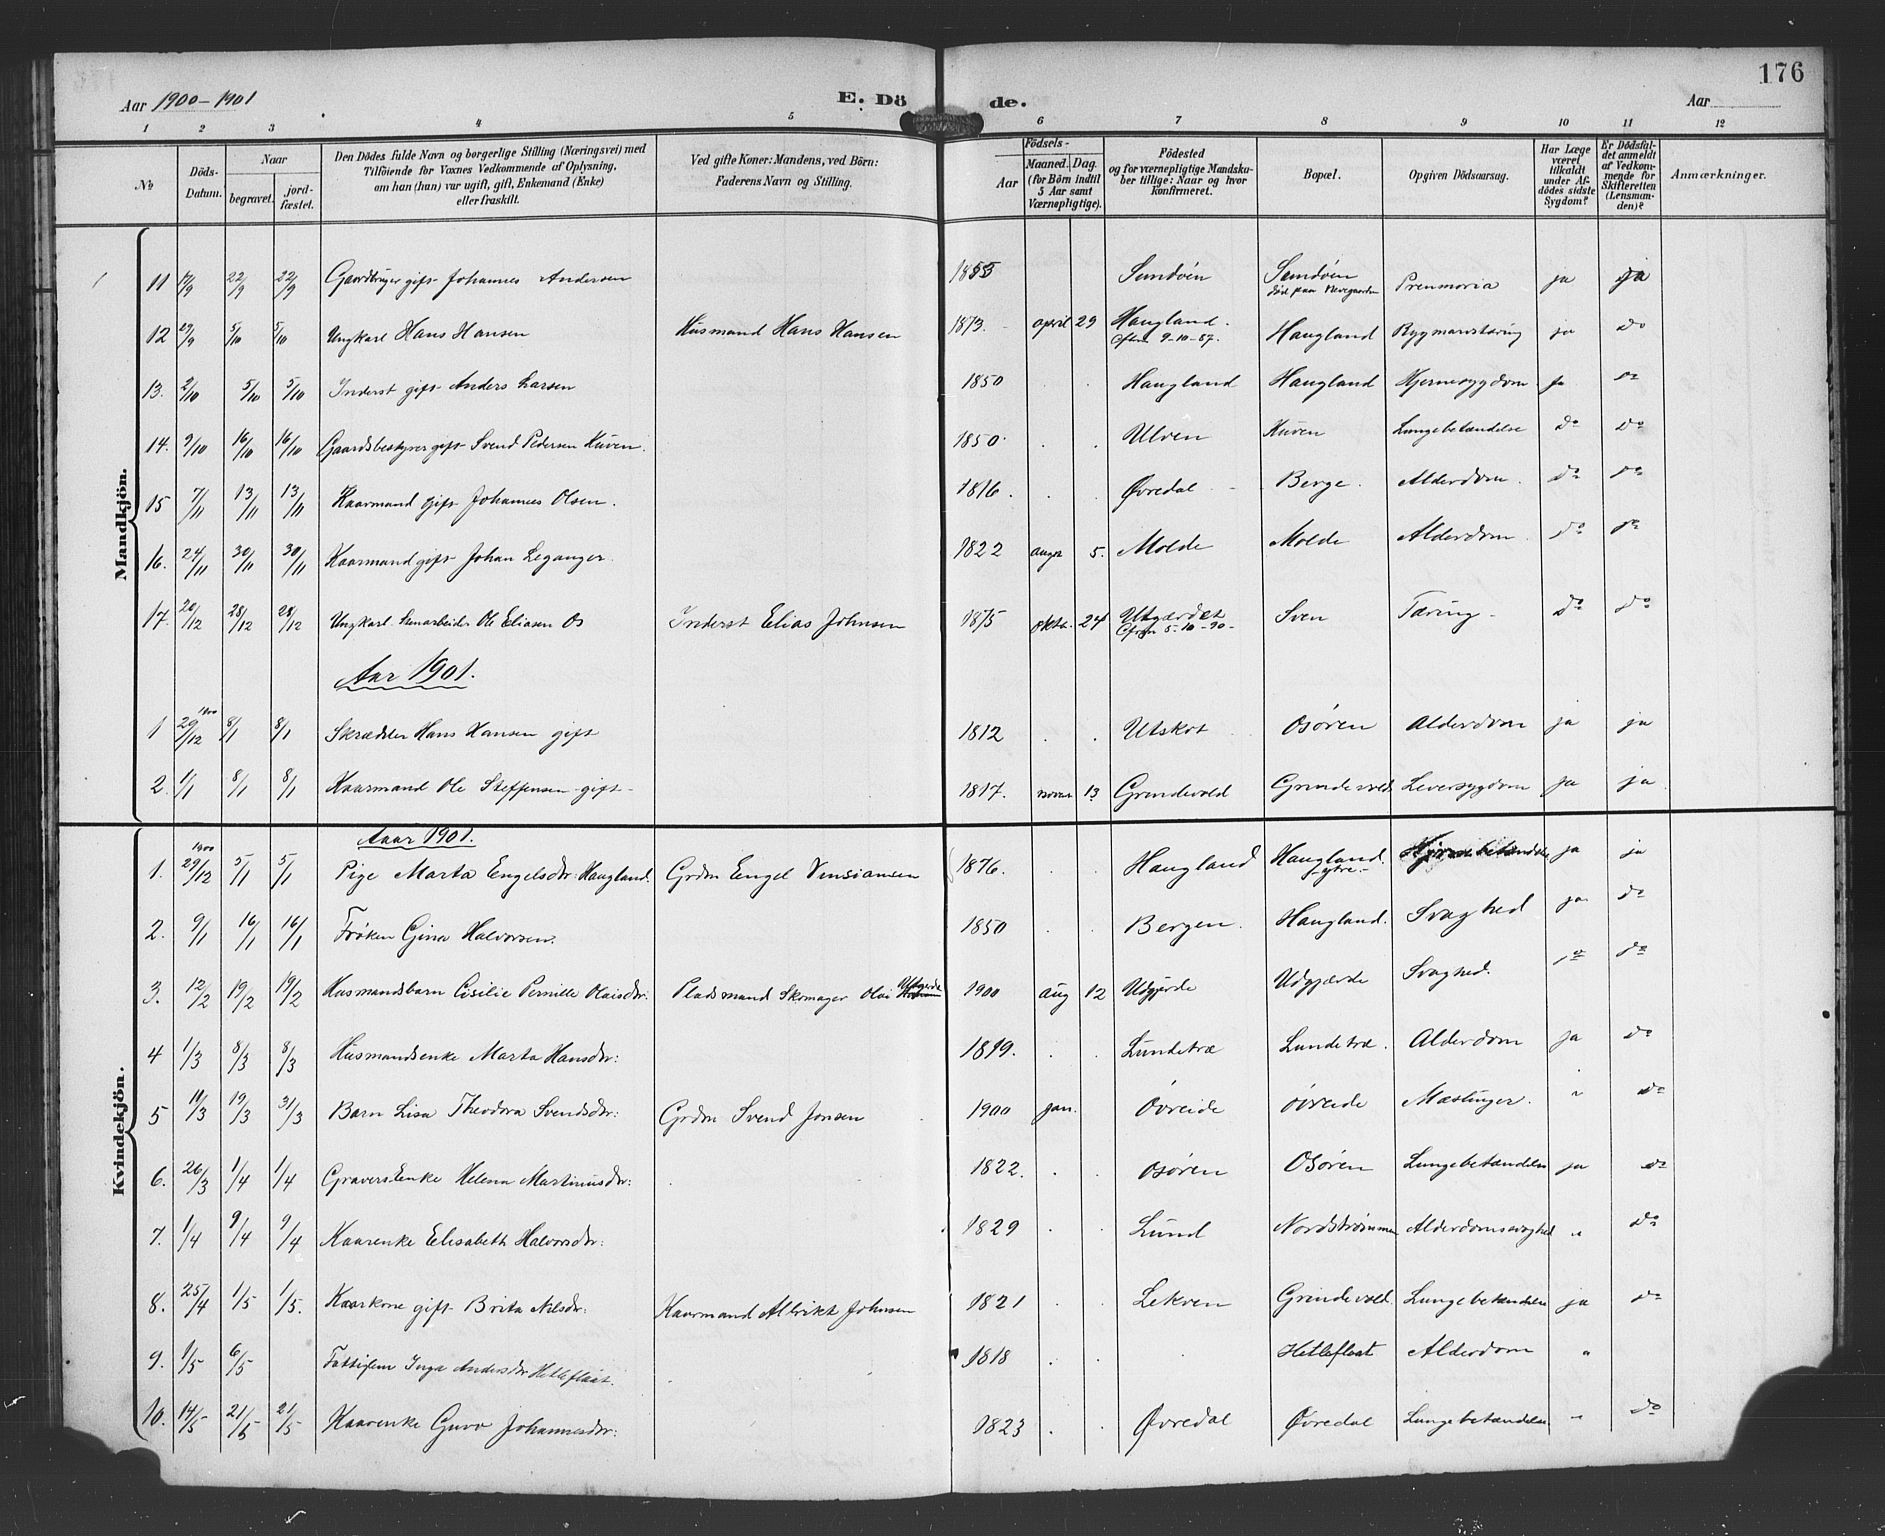 176
Aar 1900-1901 E. Dö de. Aar
1 2 3 4 5 6 7 8 9 10 11 12
No
Döds-Datum.
Naar
begravet.
jord-fæstet.
Den Dödes fulde Navn og borgerlige Stilling (Næringsvei) med
Tilföiende for Voxnes Vedkommende af Oplysning,
om han (hun) var ugift, gift, Enkemand (Enke)
eller fraskilt.
Ved gifte Koner: Mandens, ved Börn:
Faderens Navn og Stilling.
Födsels-
Aar
Maaned. Dag.
(for Börn indtil
5 Aar samt
Værnepligtige).
Födested
og for værnepligtige Mandsku-
ber tillige: Naar og hvor
Konfirmeret.
Bopæl.
Opgiven Dödsaarsag.
Har Læge
været
tilkaldt
under Af-
dödes sidste
Sygdom?
Er Dödsfal-
det anmeldt
af Vedkom-
mende for
Skifteretten
(Lensman-
den)?
Anmærkninger.
Mandkjön.
11 17/9 22/9 22/9 Gaardbruger gift Johannes Andersen 1855 Sundöen Sundöen Prenmoria ja ja
död paa
12 29/9 5/10 5/10 Ungkarl Hans Hansen Husmand Hans Hansen 1873. april 29 Haugland. Haugland Rygmarvstæring ja do
Cfirm 9-10-87.
13. 2/10 5/10 5/10 Inderst gift Anders Larsen 1850 Haugland Haugland Hjernesygdom ja do
14. 9/10 16/10 16/10 Gaardsbestyrer gift Svend Pedersen Kuven. 1850. Ulven Kuven Lungebetændelse do do
15 7/11 13/11 13/11 Kaarmand gift Johannes Olsen. 1816. Øvredal Berge. Alderdom. do do
16. 24/11 30/11 30/11 Kaarmand gift Johan Leganger. 1822 augst 5. Molde Molde Alderdom. do do
17. 20/12 28/12 28/12 Ungkarl Ole Eliasen Os Inderst Elias Johnsen 1875 oktb. 24 Utgærdet Sven Tæring do do
Cfirm 5-10-90-
Aar 1901.
1 1900 29/12 8/1 8/1 Skrædder Hans Hansen gift 1812 Utskot Osören Alderdom ja ja
2. 1/1 8/1 8/1 Kaarmand Ole Steffensen gift 1817. novbr 13 Grindevold Grindevold Leversygdom ja ja
Kvindekjön.
Aaar 1901.
1. 1900 29/12 5/1 5/1 Pige Marta Engelsdtr: Haugland. Grdm Engel Vinsiansen 1876. Haugland Haugland. Hjernebetændelse ja ja
ytre.
2. 9/1 16/1 16/1 Frøken Gina Halvorsen. 1850 Bergen. Haugland. Svaghed ja do
3. 12/2 19/2 19/2 Husmandsbarn Cisilie Pernille Olaisdtr: Pladsmand Skomager Olai Utgjerde 1900 aug 12 Udgjerde Udgjærde Svaghed. do do
4 1/3 8/3 8/3 Husmandsenke Marta Hansdtr: 1819. Lundetræ Lundetræ. Alderdom ja do
5 11/3 19/3 31/3 Barn Lisa Theodora Svendsdtr: Grdm Svend Jonsen 1900 jan. Øvreide øvreide Mæslinger. " do
6. 26/3 1/4 1/4 Graversenke Helena Martinusdtr: 1822. Osören Osören Lungebetændelse ja do
7. 1/4 9/4 9/4 Kaarenke Elisabeth Halvorsdtr: 1829 Lund Nordströmmen Alderdomssvaghed " do
8. 25/4 1/5 1/5. Kaarkone gift Brita Nilsdtr: Kaarmand Albrikt Johnsen 1821 Lekven Grindevold. Lungebetændelse ja do
9. 1/5 6/5 Fattiglem Inga Andersdtr Hetleflaat. 1818 Hetleflaat Alderdom "
10. 14/5 21/5 21/5 Kaarenke Guro Johannesdtr: 1823 Øvredal Øvredal Lungebetændelse " do